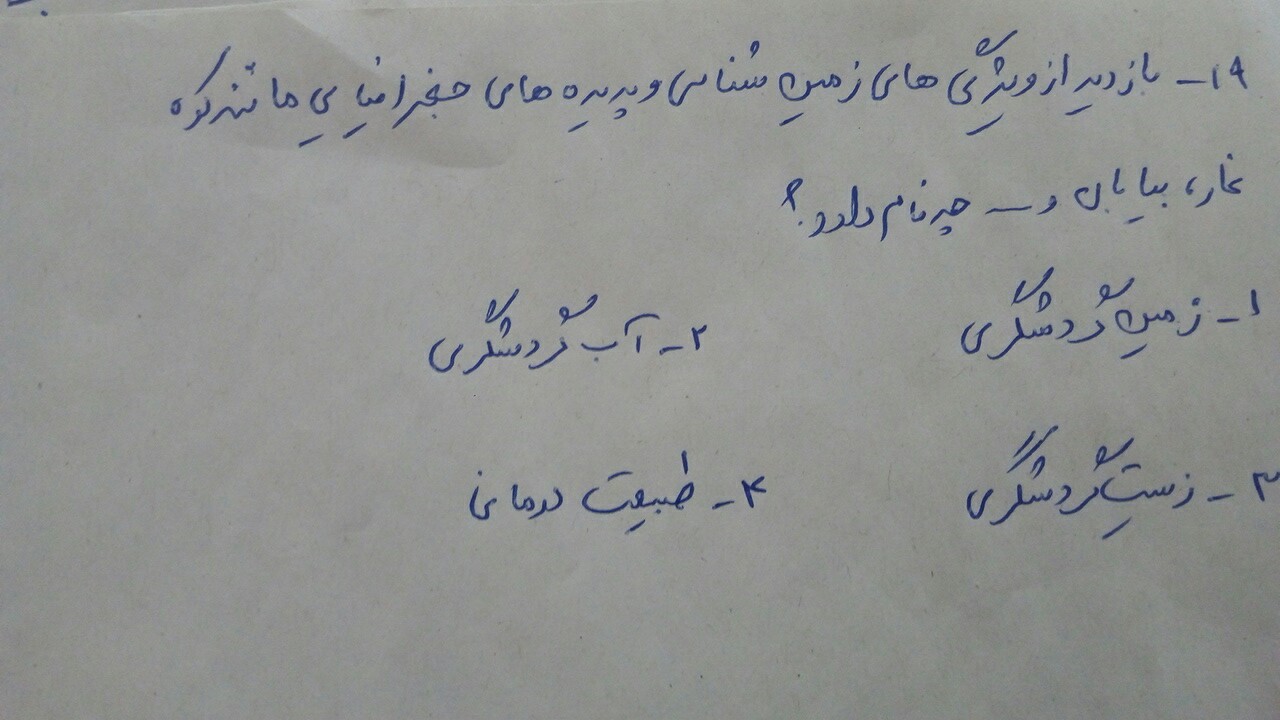 ۱۹- بازدید از ویژگی های زمین شناسی و پدیده های جغرافیایی مانند کوه
غار، بیابان و... چه نام دارد؟
۱- زمین گردشگری ۲- آب گردشگری
۳- زیست گردشگری ۴- طبیعت درمانی